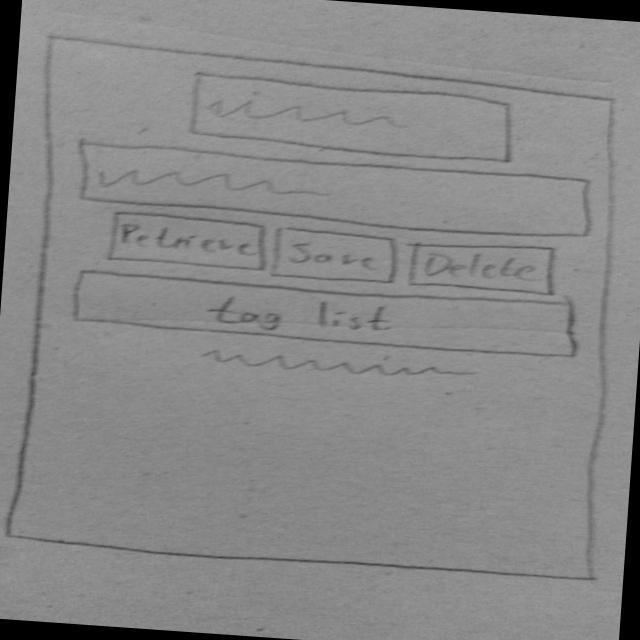 Retreve Save Delete
Log list